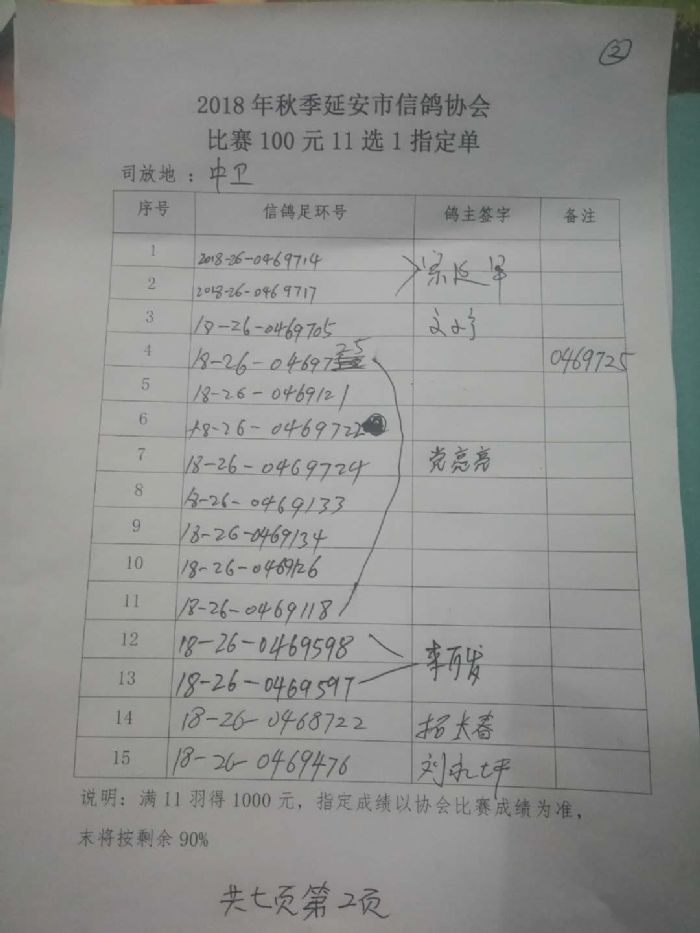 ②
2018年秋季延安市信鸽协会
比赛100元11选1指定单
司放地：中卫
序号 信鸽足环号 鸽主签字 备注
1 2018-26-0469714
2 2018-26-0469717
3 18-26-0469705
4 18-26-0469725 0469725
5 18-26-0469121
6 18-26-0469722
7 18-26-0469724 党亮亮
8 18-26-0469133
9 18-26-0469134
10 18-26-0469126
11 18-26-0469118
12 18-26-0469598
13 18-26-0469597 李万发
14 18-26-0468722 拓长春
15 18-26-0469476 刘永坪
说明：满11羽得1000元，指定成绩以协会比赛成绩为准，
末将按剩余90%
共七页第2页